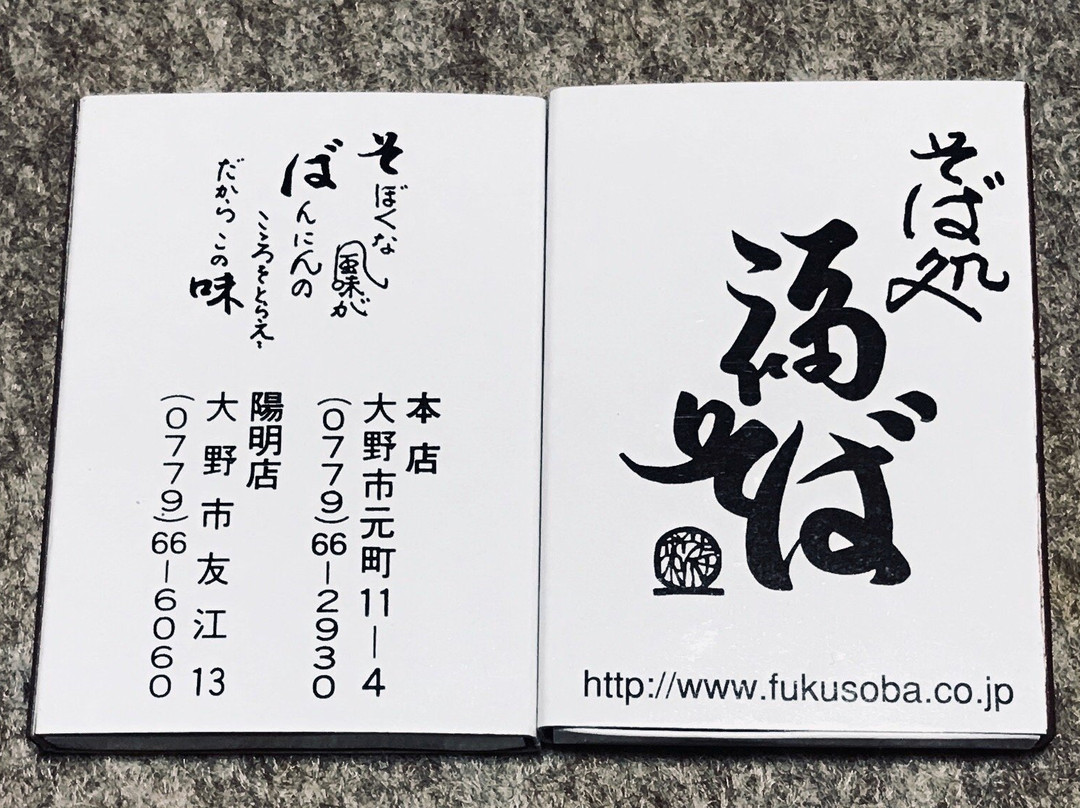 そば処
福そば
http://www.fukusoba.co.jp
そぼくな
風味が
ばんにんの
こころをとらえ
だからこの味
本店
大野市元町11―4
(0779)66―2930
陽明店
大野市友江13
(0779)66―6060